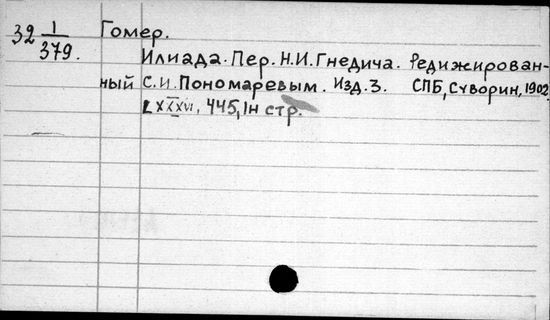 32 1/379. Гомер.
Илиада. Пер. Н.И. Гнедича. Редижирован-
ный С.И. Пономаревым. Изд. 3. СПБ, Суворин, 1902
XXXVI, 445, 1н стр.